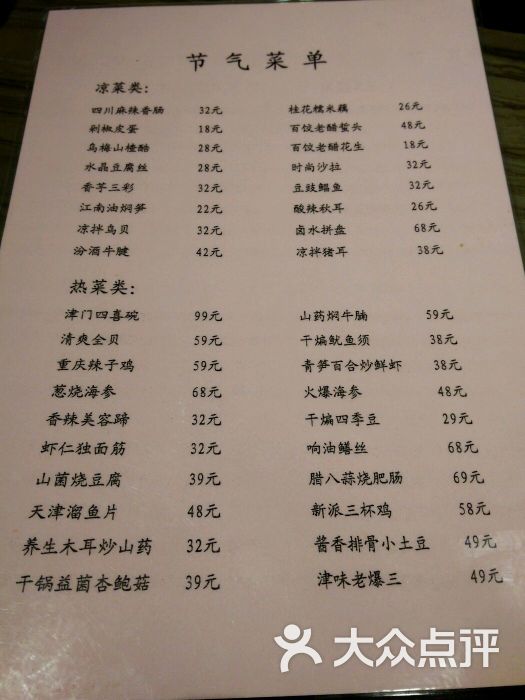 节气菜单
凉菜类：
四川麻辣香肠 32元 桂花糯米藕 26元
剁椒皮蛋 18元 百饺老醋蜇头 48元
乌梅山楂酪 28元 百饺老醋花生 18元
水晶豆腐丝 28元 时尚沙拉 32元
香芋三彩 32元 豆豉鲳鱼 32元
江南油焖笋 22元 酸辣秋耳 26元
凉拌乌贝 32元 卤水拼盘 68元
汾酒牛腱 42元 凉拌猪耳 38元
热菜类：
津门四喜碗 99元 山药焖牛腩 59元
清爽全贝 59元 干煸鱿鱼须 38元
重庆辣子鸡 59元 青笋百合炒鲜虾 38元
葱烧海参 68元 火爆海参 48元
香辣美容蹄 32元 干煸四季豆 29元
虾仁独面筋 32元 响油鳝丝 68元
山菌烧豆腐 39元 腊八蒜烧肥肠 69元
天津溜鱼片 48元 新派三杯鸡 58元
养生木耳炒山药 32元 酱香排骨小土豆 49元
干锅益菌杏鲍菇 39元 津味老爆三 49元
大众点评